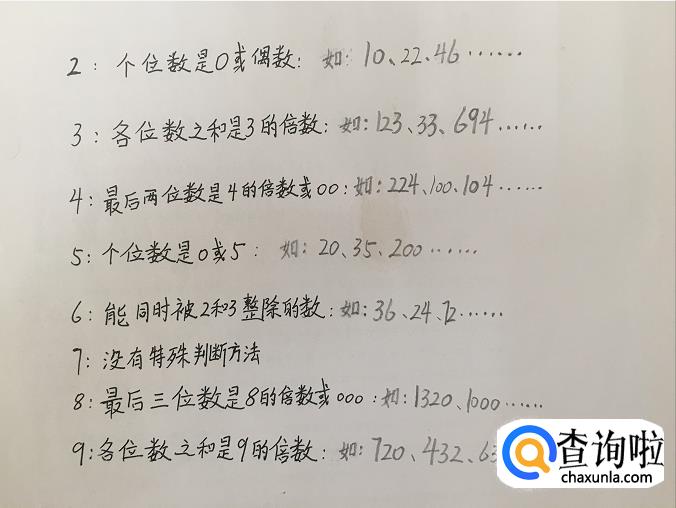 2：个位数是0或偶数：如：10、22、46……
3：各位数之和是3的倍数：如：123、33、694……
4：最后两位数是4的倍数或00：如：224、100、104……
5：个位数是0或5：如：20、35、200……
6：能同时被2和3整除的数：如：36、24、72……
7：没有特殊判断方法
8：最后三位数是8的倍数或000：如：1320、1000……
9：各位数之和是9的倍数：如：720、432、63
查询啦
chaxunla.com